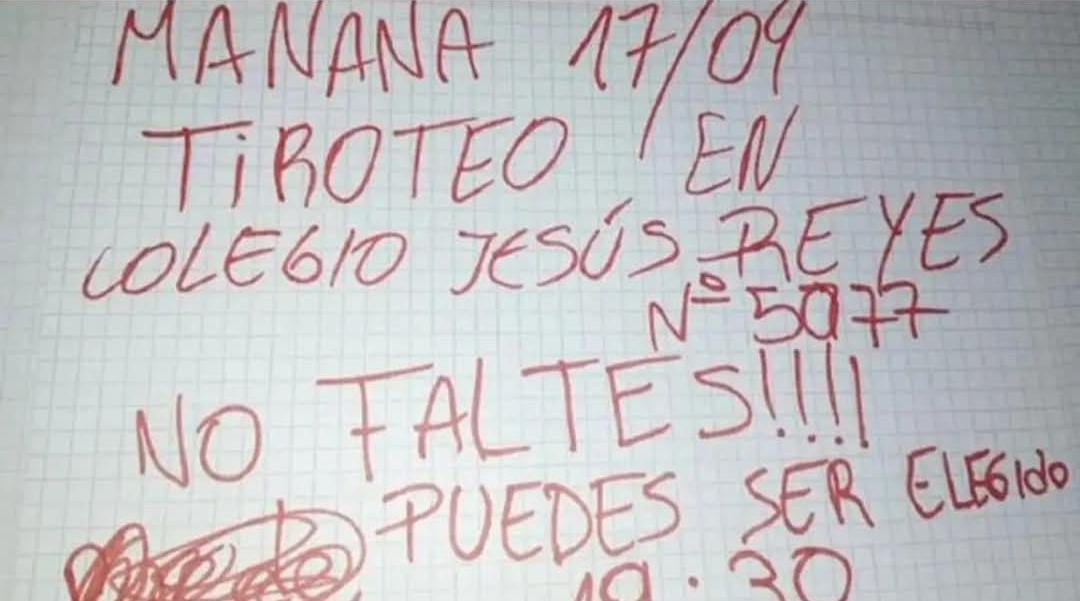 MANANA 17/09
TiROTEO EN
COLEGIO JESÚS REYES
Nº 5077
NO FALTES!!!!
PUEDES SER ELEGIdO